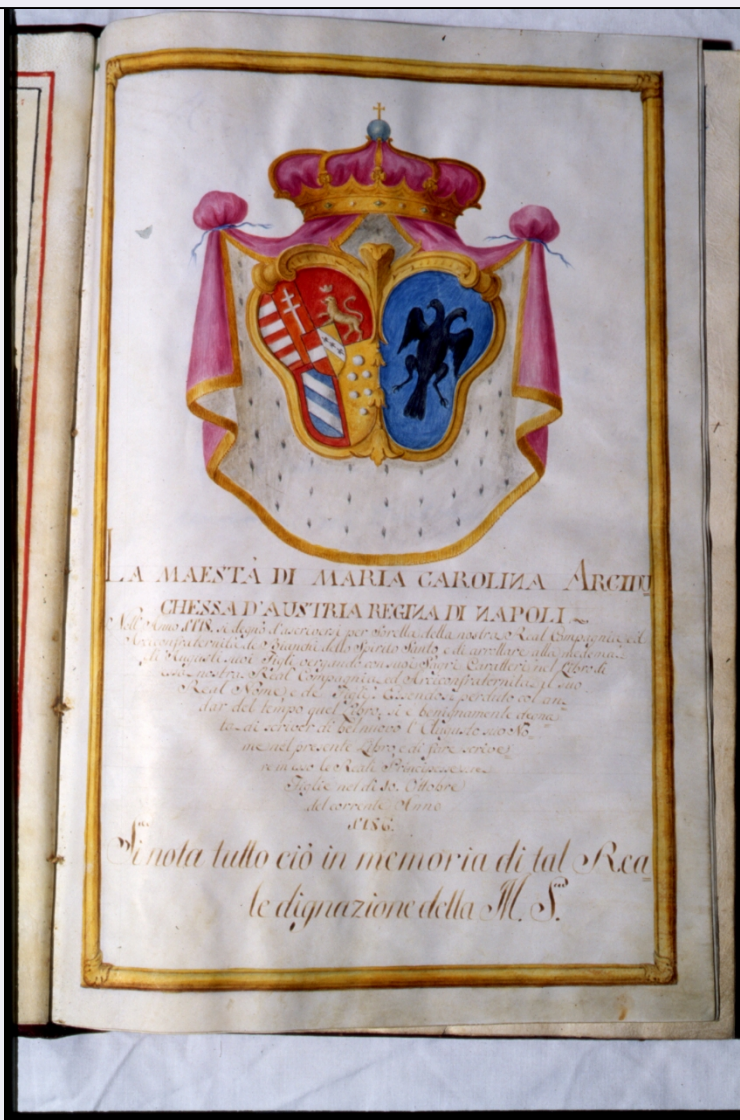 LA MAESTÀ DI MARIA CAROLINA ARCIDU
CHESSA D'AUSTRIA REGINA DI NAPOLI
Nell'Anno si degnò d'ascriversi per Sorella della nostra Real Compagnia, ed
Arciconfraternita de' Bianchi dello Spirito Santo, e di arrollare alla medema
gli Augusti suoi Figli, vergando con suoi Sagri Caratteri nel Libro di
essa nostra Real Compagnia, ed Arciconfraternita il suo
Real Nome, e de' Figli. Essendosi perduto col an
dar del tempo quel Libro, si è benignamente degna
ta di scriver di bel nuovo l'Augusto suo No
me nel presente Libro, e di fare scrive
re in esso le Reali Principesse sue
Figlie nel dì 30. Ottobre
del corrente Anno
Si nota tutto ciò in memoria di tal Rea
le dignazione della M. S.